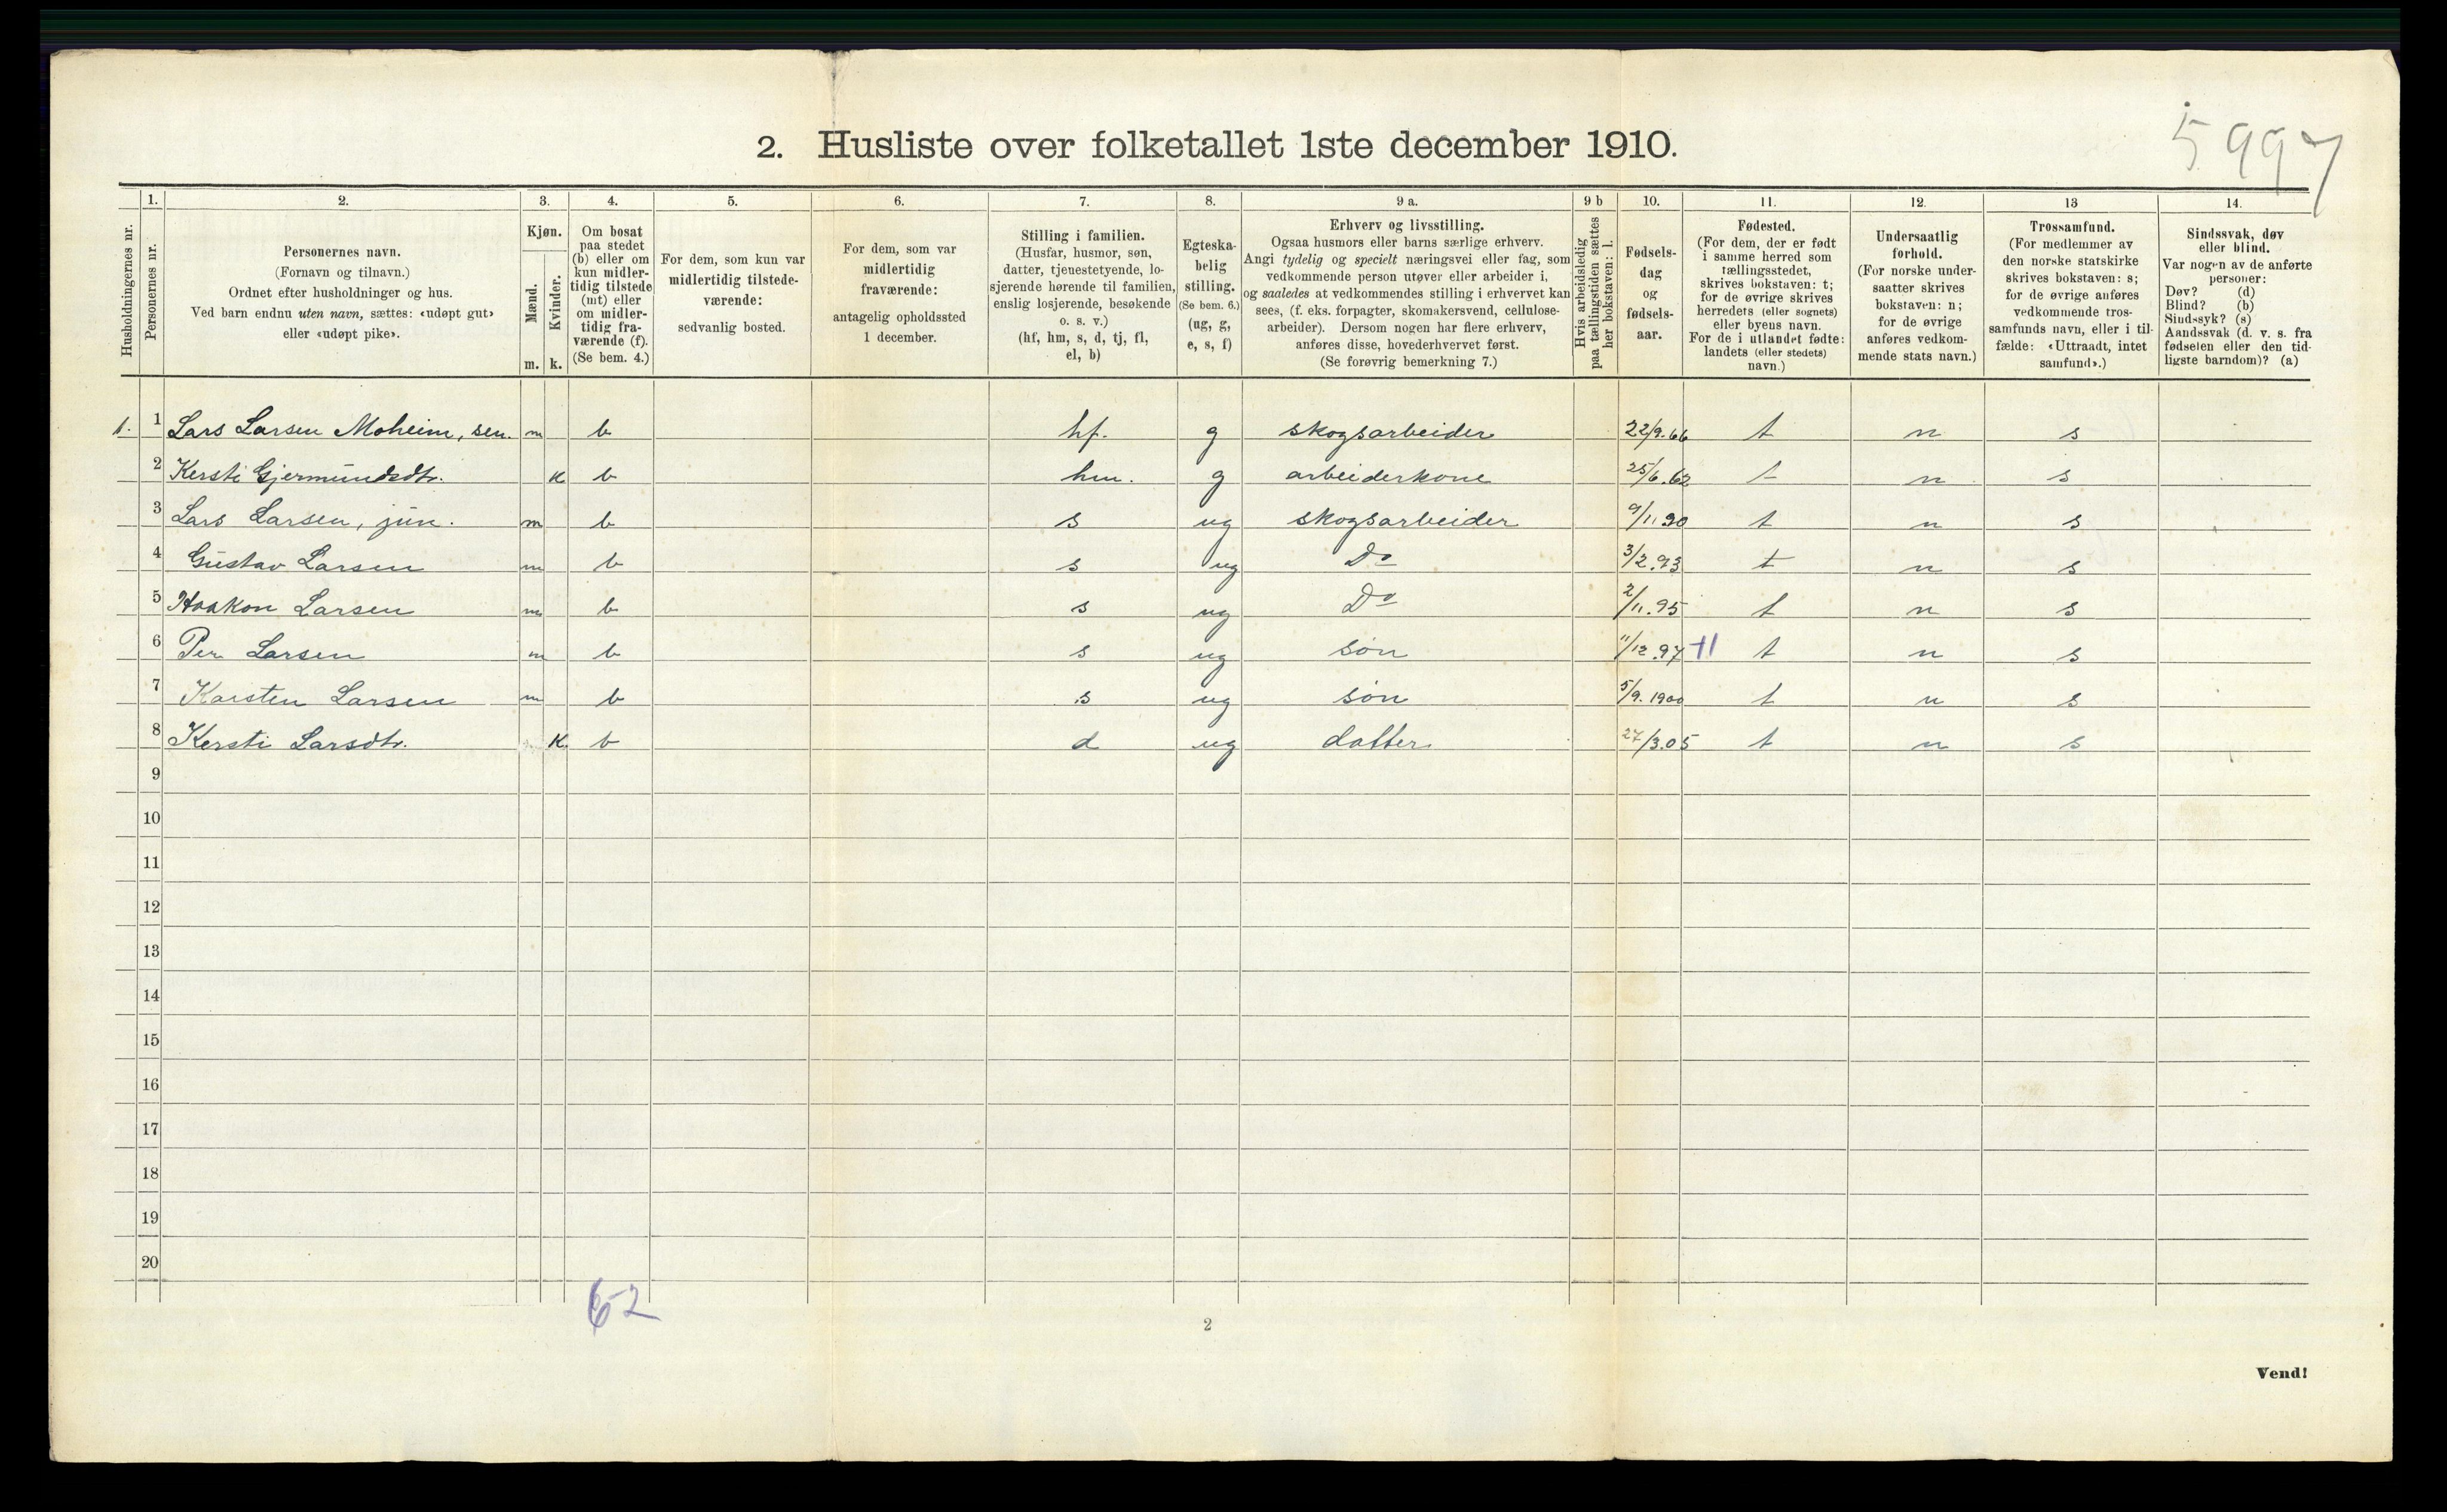 5997
2. Husliste over folketallet 1ste december 1910.
Husholdningernes nr.
1.
Personernes nr.
2.
Personernes navn.
(Fornavn og tilnavn.)
Ordnet efter husholdninger og hus.
Ved barn endnu uten navn, sættes: «udøpt gut»
eller «udøpt pike».
3.
Kjøn.
Mænd.
m.
Kvinder.
k.
4.
Om bosat
paa stedet
(b) eller om
kun midler-
tidig tilstede
(mt) eller
om midler-
tidig fra-
værende (f).
(Se bem. 4.)
5.
For dem, som kun var
midlertidig tilstede-
værende:
sedvanlig bosted.
6.
For dem, som var
midlertidig
fraværende:
antagelig opholdssted
1 december.
7.
Stilling i familien.
(Husfar, husmor, søn,
datter, tjenestetyende, lo-
sjerende hørende til familien,
enslig losjerende, besøkende
o. s. v.)
(hf, hm, s, d, tj, fl,
el, b)
8.
Egteska-
belig
stilling.
(Se bem. 6.)
(ug, g,
e, s, f)
9 a.
Erhverv og livsstilling.
Ogsaa husmors eller barns særlige erhverv.
Angi tydelig og specielt næringsvei eller fag, som
vedkommende person utøver eller arbeider i,
og saaledes at vedkommendes stilling i erhvervet kan
sees, (f. eks. forpagter, skomakersvend, cellulose-
arbeider). Dersom nogen har flere erhverv,
anføres disse, hovederhvervet først.
(Se forøvrig bemerkning 7.)
9 b
Hvis arbeidsledig
paa tællingstiden sættes
her bokstaven: l.
10.
Fødsels-
dag
og
fødsels-
aar.
11.
Fødested.
(For dem, der er født
i samme herred som
tællingsstedet,
skrives bokstaven: t;
for de øvrige skrives
herredets (eller sognets)
eller byens navn.
For de i utlandet fødte:
landets (eller stedets)
navn.)
12.
Undersaatlig
forhold.
(For norske under-
saatter skrives
bokstaven: n;
for de øvrige
anføres vedkom-
mende stats navn.)
13
Trossamfund.
(For medlemmer av
den norske statskirke
skrives bokstaven: s;
for de øvrige anføres
vedkommende tros-
samfunds navn, eller i til-
fælde: «Uttraadt, intet
samfund».)
14.
Sindssvak, døv
eller blind.
Var nogen av de anførte
personer:
Døv? (d)
Blind? (b)
Sindssyk? (s)
Aandssvak (d. v. s. fra
fødselen eller den tid-
ligste barndom)? (a)
1. 1 Lars Larsen Moheim, sen. m b hf. g skogsarbeider 22/9.66 t n s
2 Kersti Gjermundsdtr. k b hm. g arbeiderkone 25/6.62 t n s
3 Lars Larsen, jun. m b s ug skogsarbeider 9/11 90 t n s
4 Gustav Larsen m b s ug Do 3/2.93 t n s
5 Haakon Larsen m b s ug Do 2/11.95 t n s
6 Per Larsen m b s ug søn 11/12.97 t n s
7 Karsten Larsen m b s ug søn 5/9.1900 t n s
8 Kersti Larsdtr. k. b d ug datter 27/3.05 t n s
9
10
11
12
13
14
15
16
17
18
19
20
62
2
Vend!